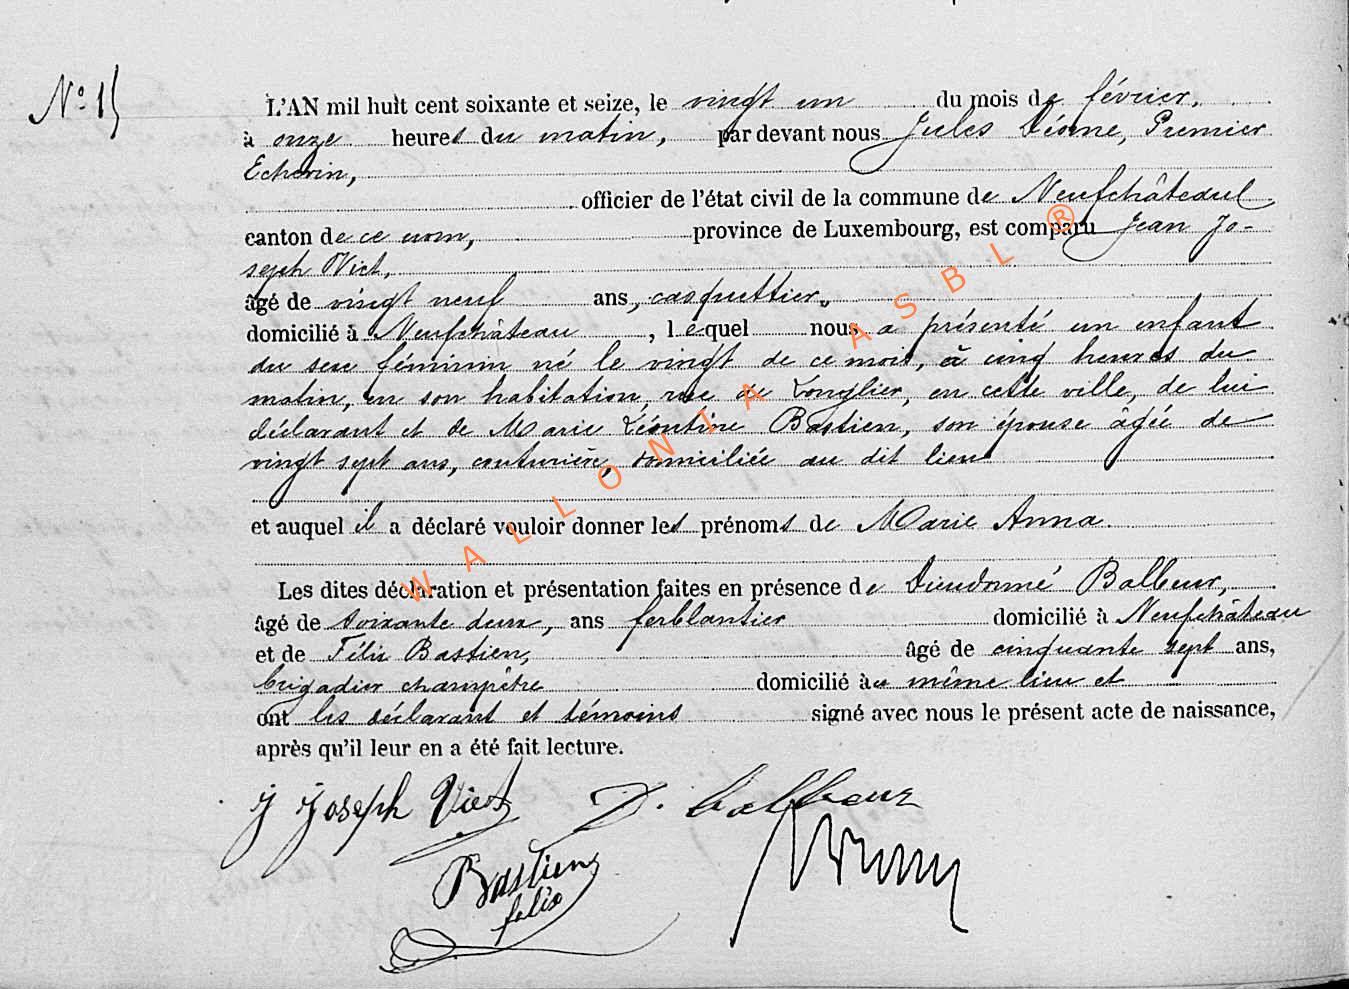 N° 15
L'AN mil huit cent soixante et seize, le vingt un du mois de février,
à onze heures du matin, par devant nous Jules Léonne, Premier
Echevin,
officier de l'état civil de la commune de Neufchâteau
canton de ce nom, province de Luxembourg, est comparu Jean Jo-
seph Vict,
âgé de vingt neuf ans, casquettier,
domicilié à Neufchâteau, lequel nous a présenté un enfant
du sexe féminin né le vingt de ce mois, à cinq heures du
matin, en son habitation, rue de Longlier, en cette ville, de lui
déclarant et de Marie Léontine Bastien, son épouse âgée de
vingt sept ans, couturière, domiciliée au dit lieu
et auquel il a déclaré vouloir donner les prénoms de Marie Anna.
Les dites déclaration et présentation faites en présence de Dieudonné Balbeur,
âgé de soixante deux, ans ferblantier domicilié à Neufchâteau
et de Félix Bastien, âgé de cinquante sept ans,
brigadier champêtre domicilié au même lieu et
ont les déclarant et témoins signé avec nous le présent acte de naissance,
après qu'il leur en a été fait lecture.
J Joseph Vict D. Balbeur
Bastien
felix
WALLONIA ASBL ®